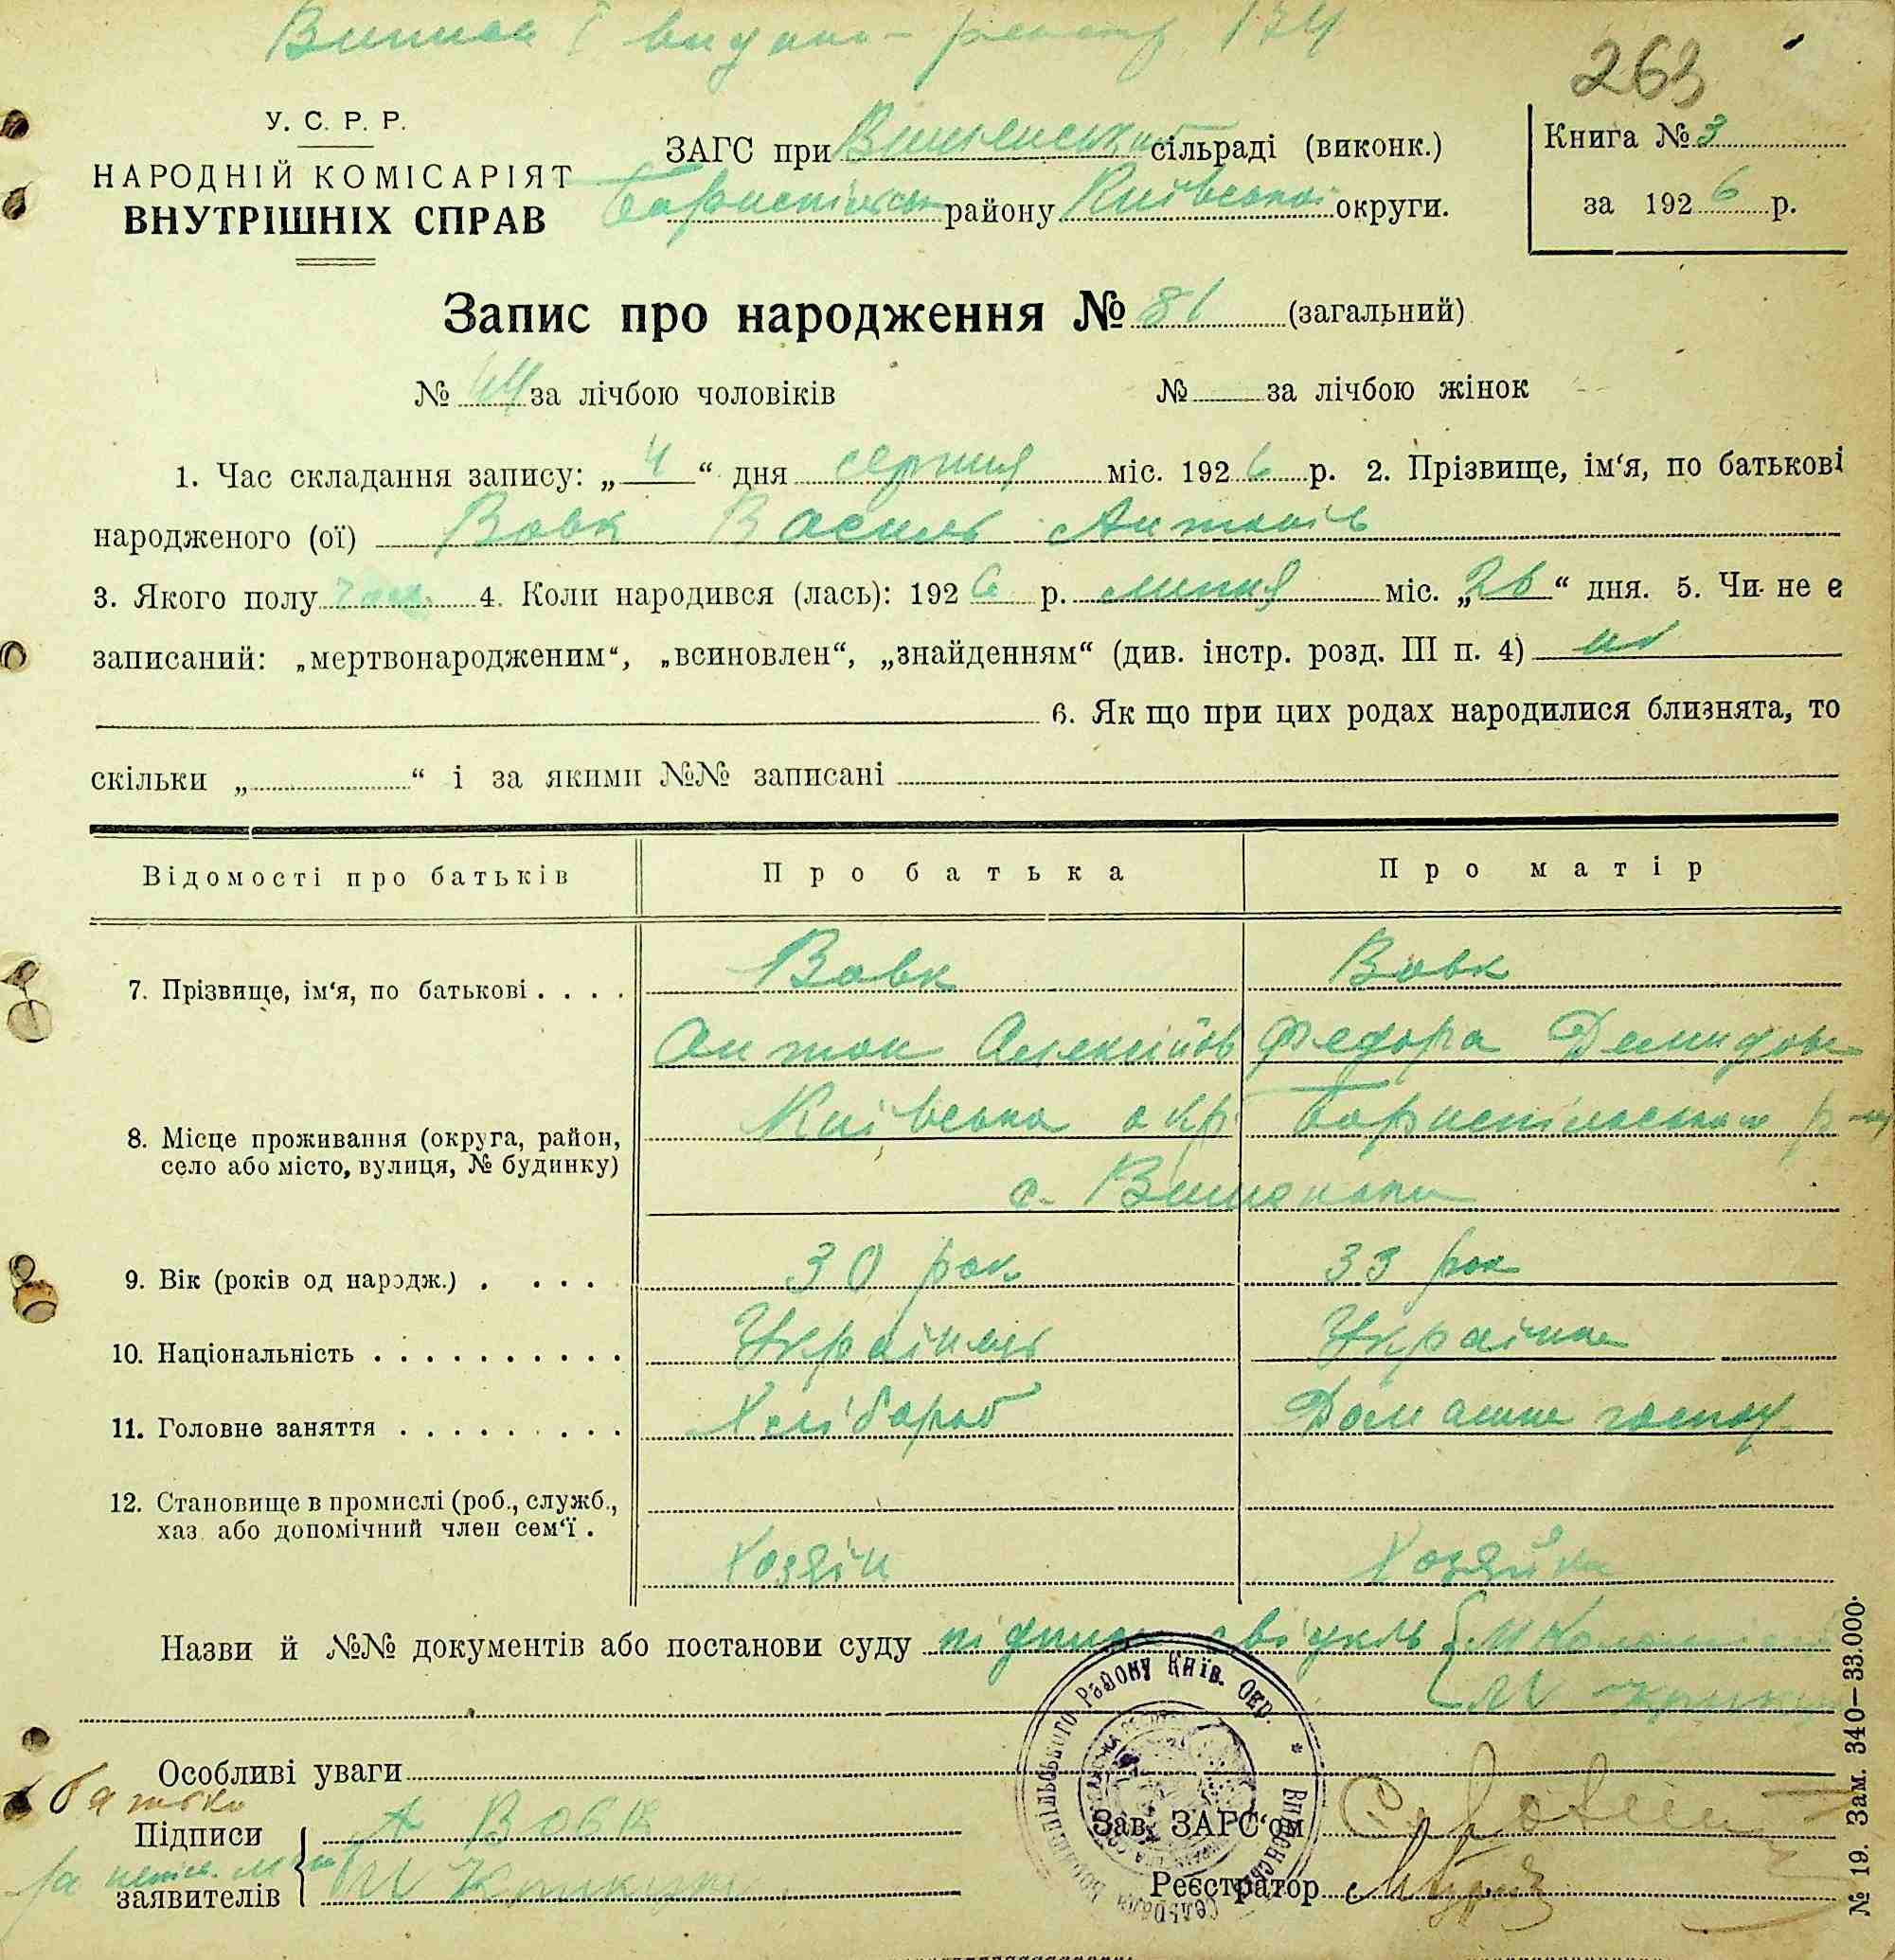 263
У. С. Р. Р.
НАРОДНІЙ КОМІСАРІЯТ
ВНУТРІШНІХ СПРАВ
ЗАГС при сільраді (виконк.)
району Київської округи.
Книга № 3
за 1926 р.
Запис про народження № 81 (загальний)
№ 44 за лічбою чоловіків № за лічбою жінок
1. Час складання запису: „4“ дня серпня міс. 1926 р. 2. Прізвище, ім‘я, по батькові
народженого (ої) Вовк Василь Антонів
3. Якого полу чол. 4. Коли народився (лась): 1926 р. липня міс. „26“ дня. 5. Чи не є
записаний: „мертвонародженим“, „всиновлен“, „знайденням“ (див. інстр. розд. III п. 4) ні
6. Як що при цих родах народилися близнята, то
скільки „ “ і за якими №№ записані
Відомості про батьків Про батька Про матір
7. Прізвище, ім‘я, по батькові . . . . Вовк Вовк
Антон Алексіїов Федора Демидов
8. Місце проживання (округа, район, село або місто, вулиця, № будинку) Київська окр Бориспільського р-ну
с.
9. Вік (років од народж.) . . . . 30 рок 33 рок
10. Національність . . . . . . . . . . Українець Українка
11. Головне заняття . . . . . . . . . Хлібороб Домашнє господ
12. Становище в промислі (роб., служб.,
хаз. або допомічний член сем‘ї .
Хозяін Хозяйка
Назви й №№ документів або постанови суду підписи свідків
Особливі уваги
батько
Підписи А Вовк
заявителів
Зав. ЗАГС‘ом
Реєстратор
Району Київ. Окр.
№ 19. Зам. 340—33.000.